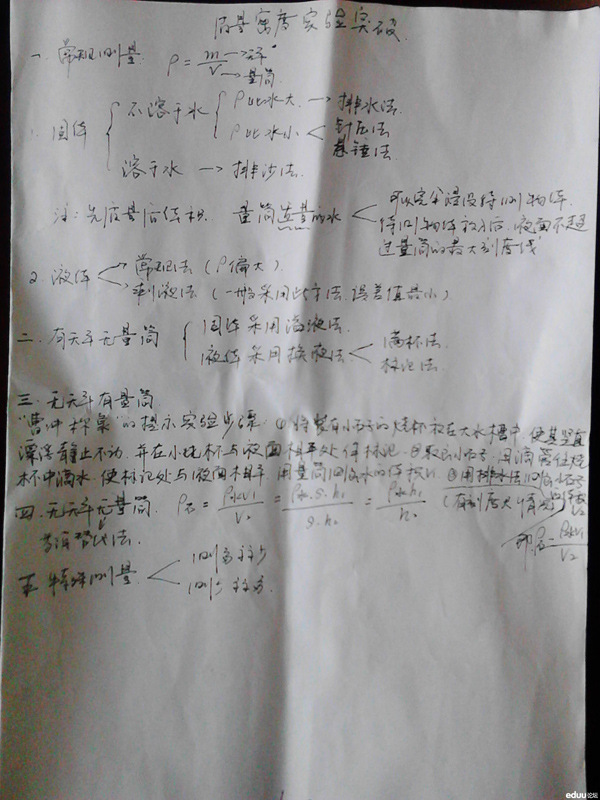 质量密度实验突破
一、常规测量 ρ = m/V →天平 →量筒
1. 固体 不溶于水 ρ比水大 → 排水法
ρ比水小 针压法
悬锤法
溶于水 → 排沙法
注:先质量后体积. 量筒适量的水 可以完全浸没待测物体.
待测物体放入后,液面不超
过量筒的最大刻度线
2. 液体 常规法(ρ偏大)
剩液法(一般采用此方法,误差值最小)
二、有天平无量筒 固体采用满液法.
液体采用换液法 满杯法
标记法
三、无天平有量筒
"曹冲称象"的提示实验步骤 ①将装有小石子的烧杯放在大水槽中,使其竖直
漂浮静止不动,并在小烧杯与液面相平处作标记 ②取出小石子,用滴管往烧
杯中滴水,使标记处与液面相平,用量筒测出水的体积V1 ③用排水法测出小石子
四、无天平无量筒. ρ石 = ρ水V1/V2 = ρ水·S·h1/S·h2 = ρ水h1/h2 (有刻度尺情况)
即ρ石=ρ水V1/V2
等压替代法.
五、特殊测量 测多算少
测少算多.
eduu论坛